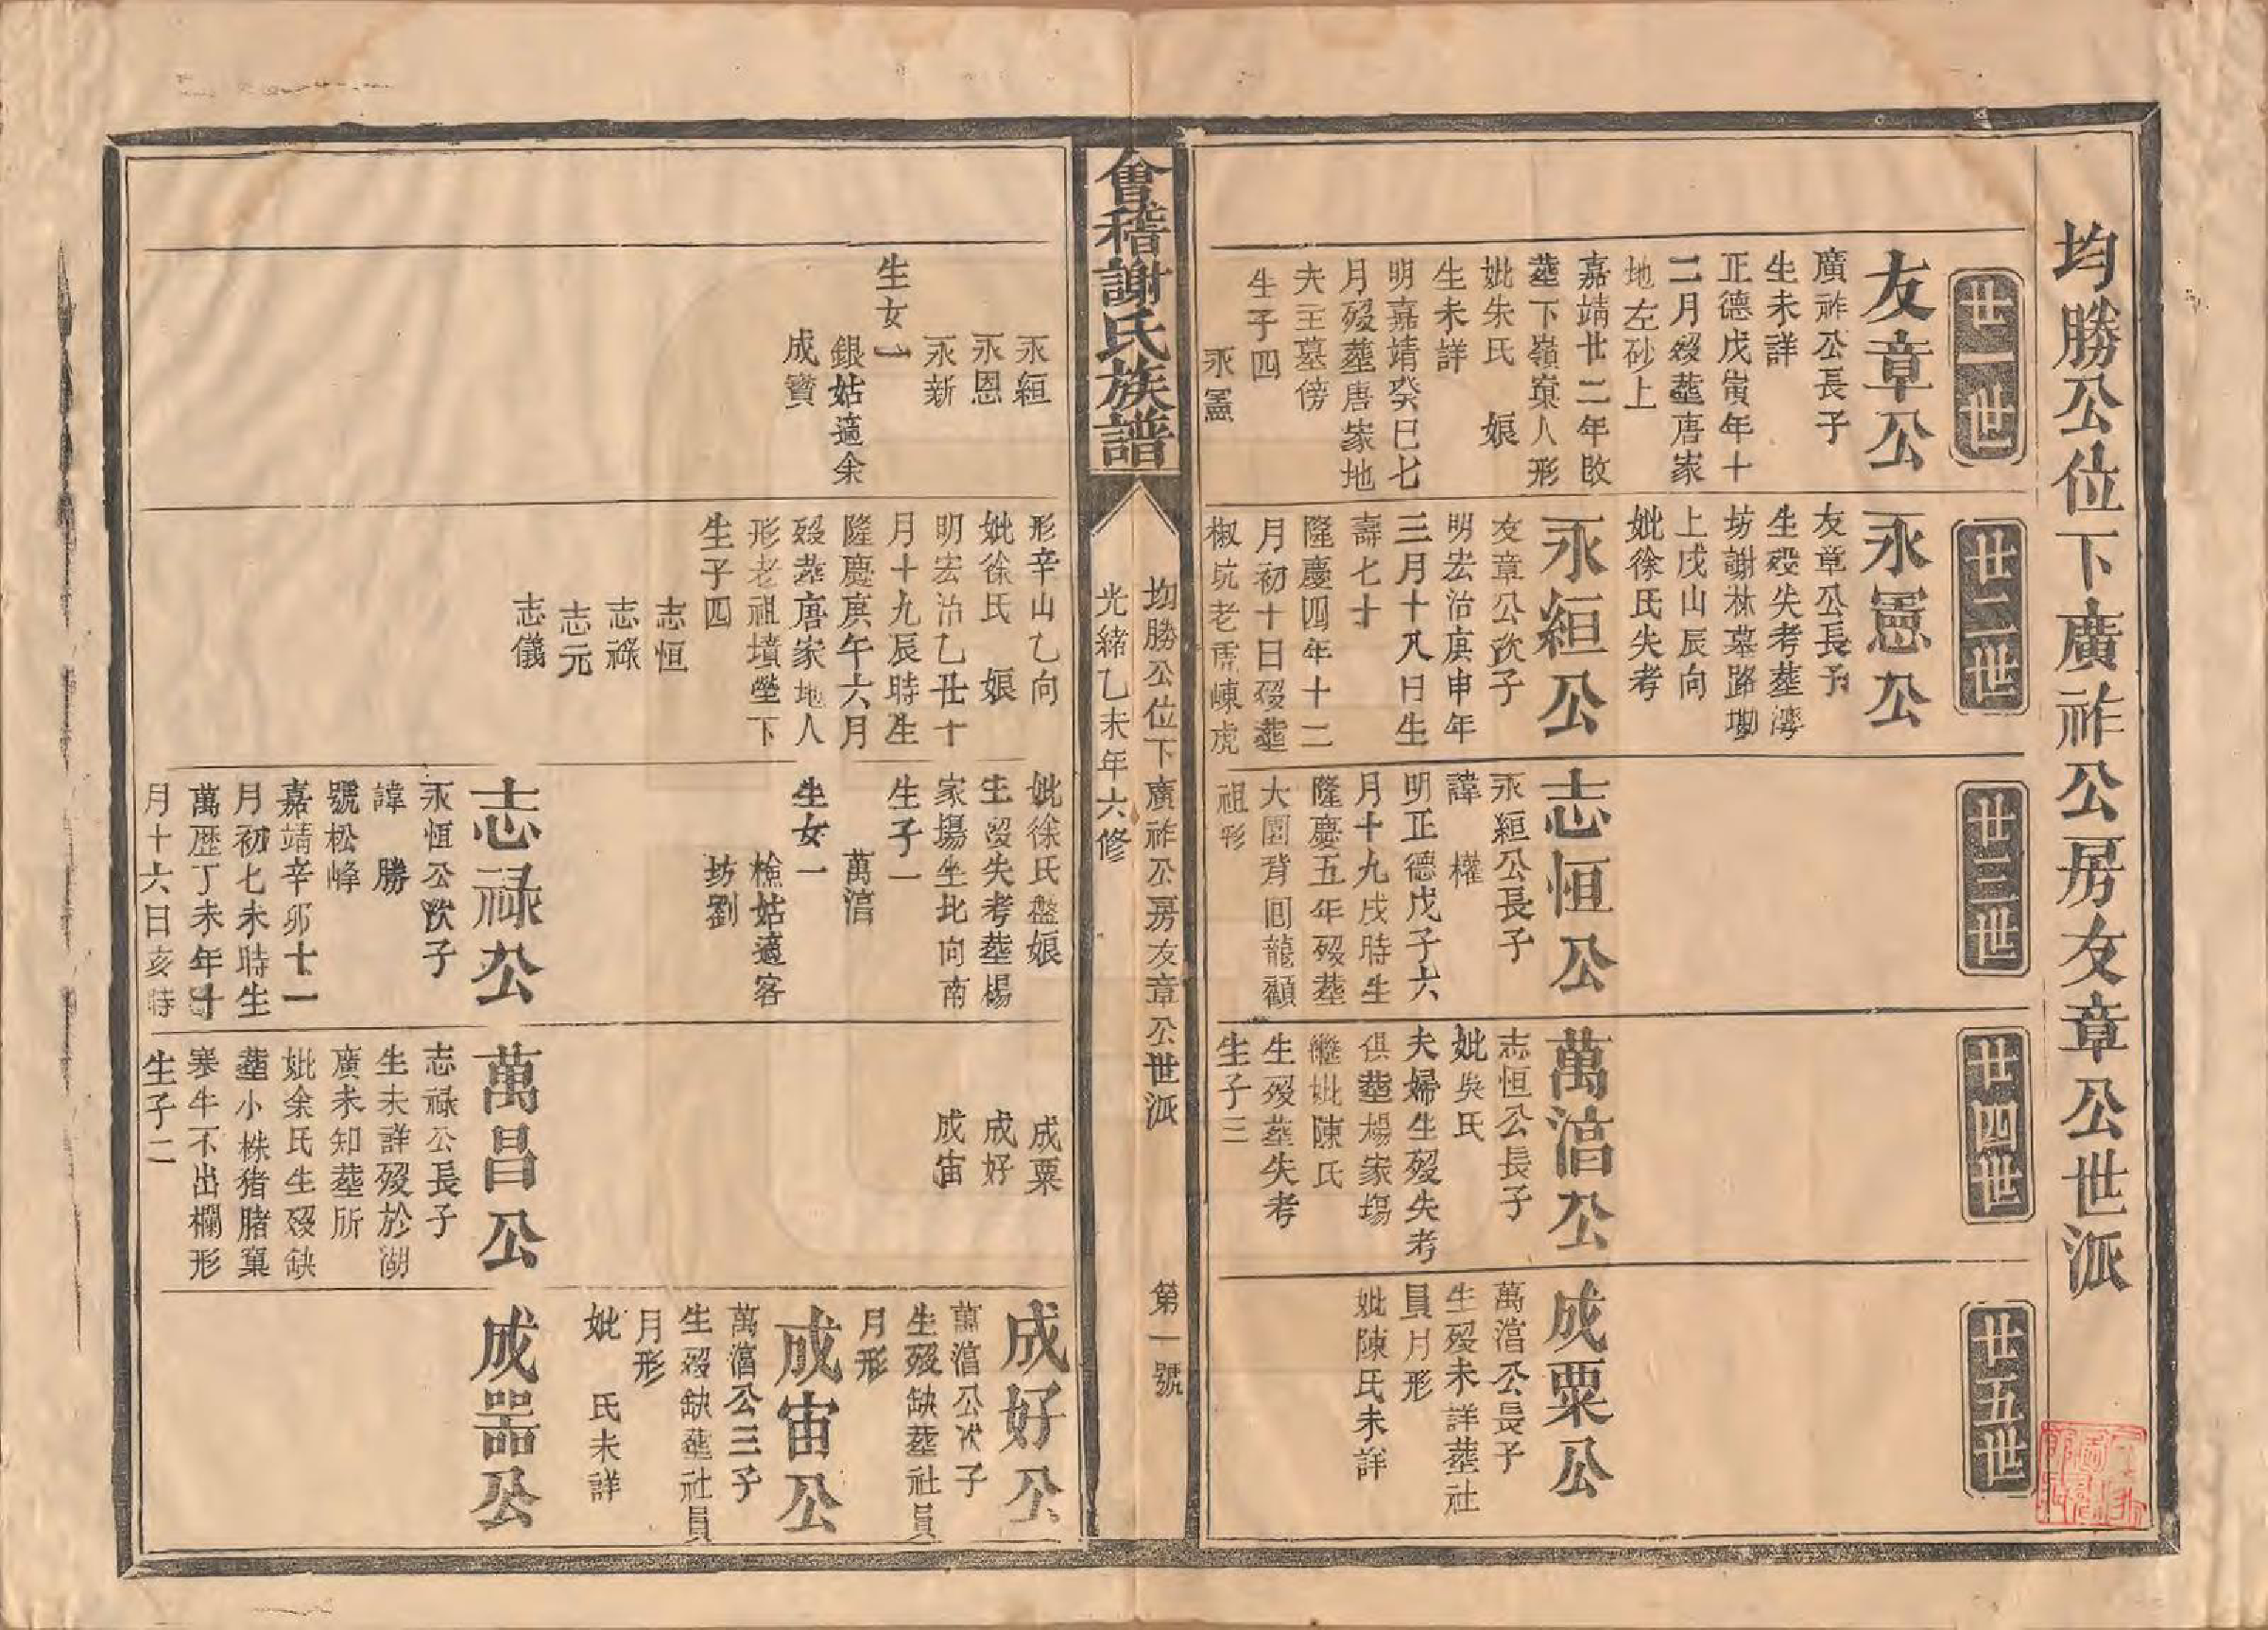 均勝公位下廣祚公房友章公世派
廿一世
友章公
廣祚公長子
生未詳
正德戊寅年十
二月歿塟唐家
地左砂上
嘉靖廿二年改
塟下嶺寨人形
妣朱氏　娘
生未詳
明嘉靖癸巳七
月歿塟唐家地
夫主墓傍
生子四
永憲
永絙
永恩
永新
生女一
銀姑適余
成寳
廿二世
永憲公
友章公長子
生歿失考塟灣
坊謝林墓路墈
上戊山辰向
妣徐氏失考
永絙公
友章公次子
明宏治庚申年
三月十八日生
壽七十
隆慶四年十二
月初十日歿塟
椒坑老虎崠虎
形辛山乙向
妣徐氏　娘
明宏治乙丑十
月十九辰時生
隆慶庚午六月
歿塟唐家地人
形老祖墳塋下
生子四
志恒
志祿
志元
志儀
廿三世
志恒公
永絙公長子
諱　權
明正德戊子六
月十九戌時生
隆慶五年歿塟
大園背囘龍顧
祖形
妣徐氏盤娘
生歿失考塟楊
家塲坐北向南
生子一
萬湻
生女一
檢姑適客
坊劉
志禄公
永恒公次子
諱　勝
號松峰
嘉靖辛卯十一
月初七未時生
萬歷丁未年十
月十六日亥時
廿四世
萬湻公
志恒公長子
妣吳氏
夫婦生歿失考
俱塟楊家塲
繼妣陳氏
生歿塟失考
生子三
成粟
成好
成宙
萬昌公
志禄公長子
生未詳歿於湖
廣未知塟所
妣余氏生歿缺
塟小株猪腊窠
寒牛不出欄形
生子二
廿五世
成粟公
萬湻公長子
生歿未詳塟社
員月形
妣陳氏未詳
成好公
萬湻公次子
生歿缺塟社員
月形
成宙公
萬湻公三子
生歿缺塟社員
月形
妣　氏未詳
成器公
會稽謝氏族譜
均勝公位下廣祚公房友章公世派
第一號
光緒乙未年六修